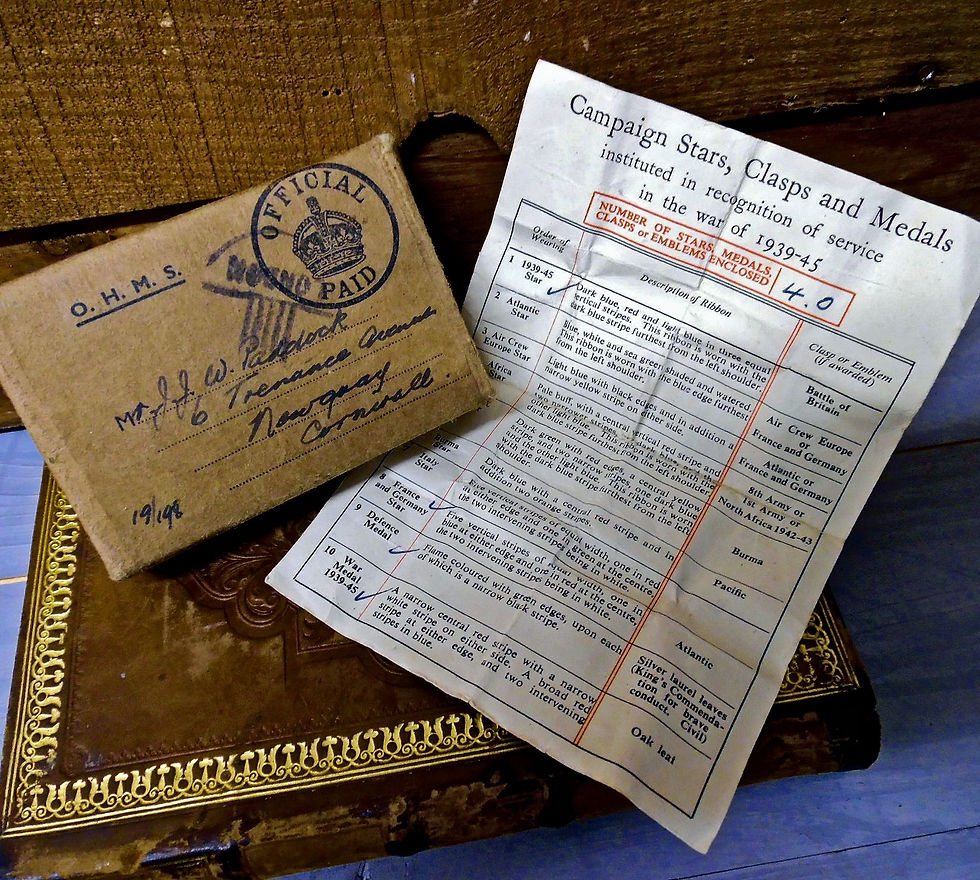 OFFICIAL
PAID
O. H. M. S.
Mr. J. J. W. Paddock
6 Trenance Avenue
Newquay
Cornwall
19/198
Campaign Stars, Clasps and Medals
instituted in recognition of service
in the war of 1939-45
NUMBER OF STARS, MEDALS,
CLASPS or EMBLEMS ENCLOSED
4.0
Order of
Wearing
Description of Ribbon
Clasp or Emblem
(if awarded)
1 1939-45
Star
Dark blue, red and light blue in three equal
vertical stripes. This ribbon is worn with the
dark blue stripe furthest from the left shoulder.
Battle of
Britain
2 Atlantic
Star
Blue, white and sea green shaded and watered.
This ribbon is worn with the blue edge furthest
from the left shoulder.
Air Crew Europe
or
France and Germany
3 Air Crew
Europe Star
Light blue with black edges and in addition a
narrow yellow stripe on either side.
Atlantic or
France and Germany
Africa
Star
Pale buff, with a central vertical red stripe and
two narrower stripes,
dark blue stripe furthest from the left shoulder.
8th Army or
1st Army or
North Africa 1942-43
Dark green with red edges, a central yellow
stripe, and two narrow stripes, one dark blue
and the other light blue. This ribbon is worn
with the dark blue stripe furthest from the left
shoulder.
Burma
Burma
Star
Dark blue with a central red stripe and in
addition two orange stripes.
Pacific
Italy
Star
Five vertical stripes of equal width, one in red
at either edge and one in green at the centre,
the two intervening stripes being in white.
8 France
and Germany
Star
Five vertical stripes of equal width, one in
blue at either edge and one in red at the centre,
the two intervening stripes being in white.
Atlantic
9 Defence
Medal
Flame coloured with green edges, upon each
of which is a narrow black stripe.
Silver laurel leaves
(King's Commenda-
tion for brave
conduct. Civil)
10 War
Medal
1939-45
A narrow central red stripe with a narrow
white stripe on either side. A broad red
stripe at either edge, and two intervening
stripes in blue.
Oak leaf